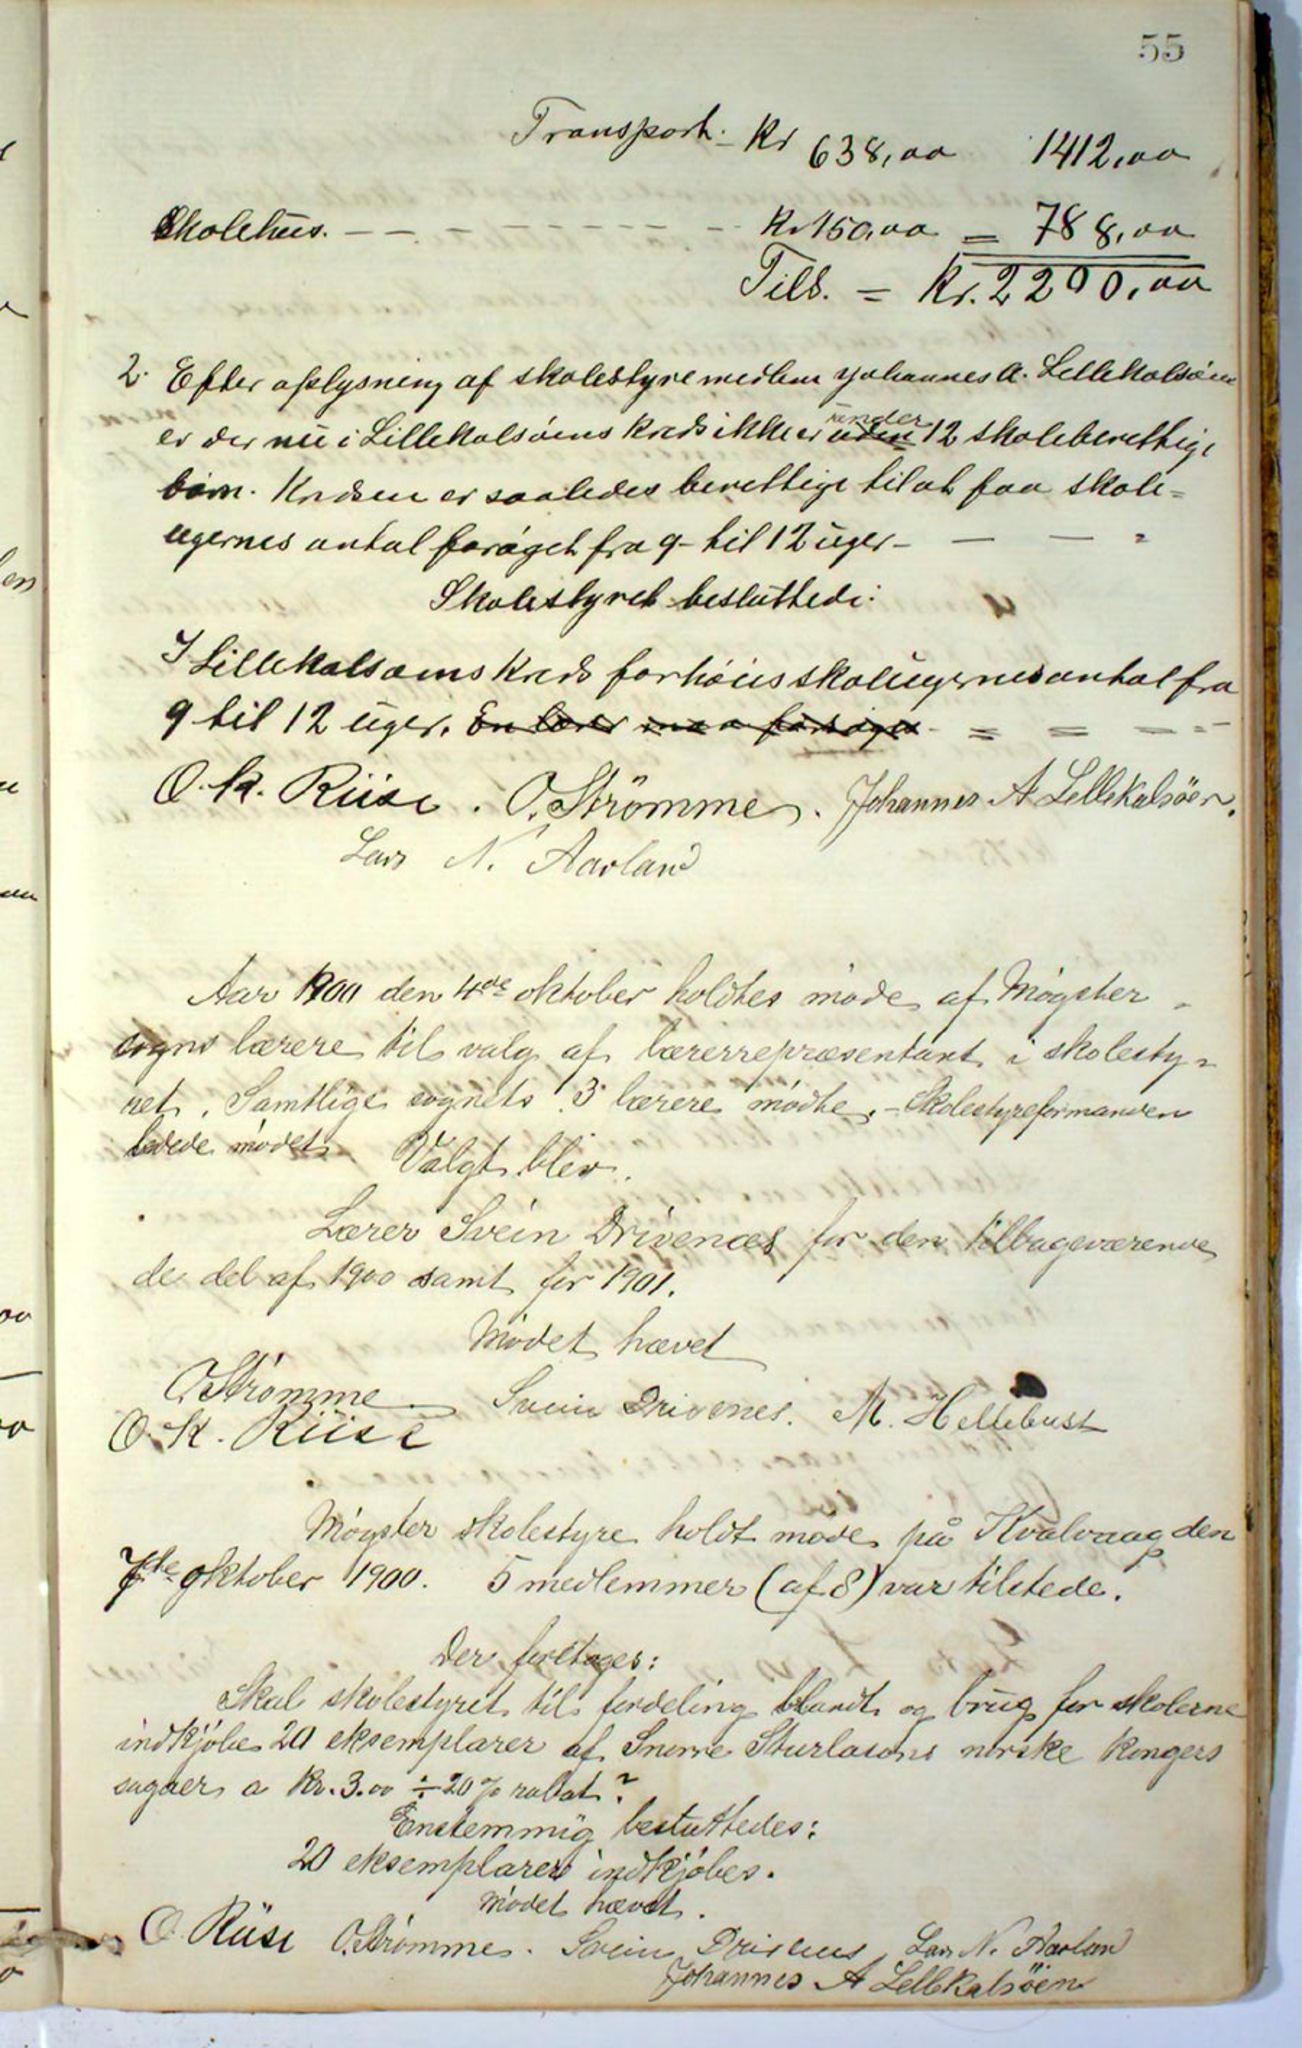 55
Transport. Kr 638,00 1412,00
Skolehus. — — — — — — — — — Kr 150,00 = 788,00
Tils. = Kr. 2200,00
2. Efter oplysning af skolestyremedlem Johannes A. Lillekalsöen
er der nu i Lillekalsöens kreds ikke er uden under 12 skoleberettige
børn. Kredsen er saaledes berettige til at faa skole-
ugernes antal forøget fra 9 - til 12 uger - — — "
Skolestyret besluttede:
I Lillekalsøens kreds forhøies skoleugernes antal fra
9 til 12 uger. En lærer maa forsøges - = = — =
O. K. Riise. O. Strömme. Johannes A Lellekalsöen.
Lars N. Aarland
Aar 1900 den 4de oktober holdtes møde af Møgster
sogns lærere til valg af lærerrepræsentant i skolesty-
ret. Samtlige sognets 3 lærere mødte. - Skolestyreformanden
ledede mødet. Valgt blev.
Lærer Svein Drivenæs for den tilbageværende
de del af 1900 samt for 1901.
Mødet hævet
O Strømme Svein Drivenes. M. Hellebust
O. K. Riise
Møgster skolestyre holdt møde på Kvalvaag den
7de oktober 1900. 5 medlemmer (af 8) var tilstede.
Der foretoges:
Skal skolestyret til fordeling blandt og brug for skolerne
indkjøbe 20 eksemplarer af Snorre Sturlasons norske kongers
sagaer a kr. 3.00 ÷ 20% rabat?
Enstemmig besluttedes:
20 eksemplarer indkjøbes.
Mødet hævet.
O. Riise O. Strømme. Svein Drivenes, Lars N. Aarland
Johannes A Lellekalsöen